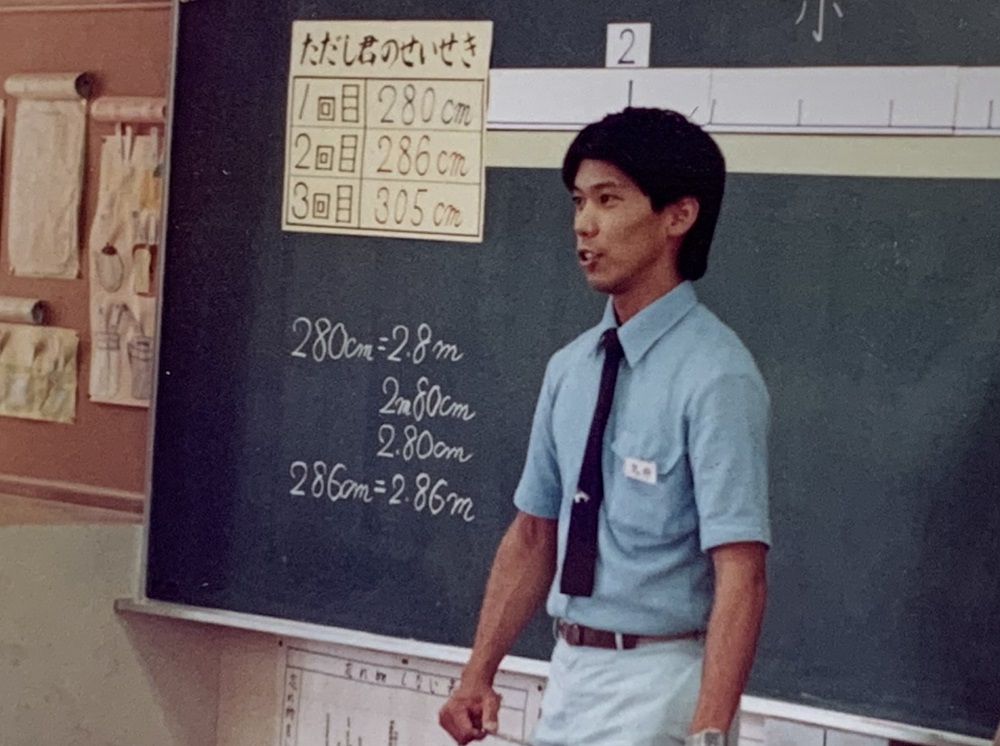 ただし君のせいせき
1回目 280cm
2回目 286cm
3回目 305cm
2
280cm=2.8m
2m80cm
2.80cm
286cm=2.86m